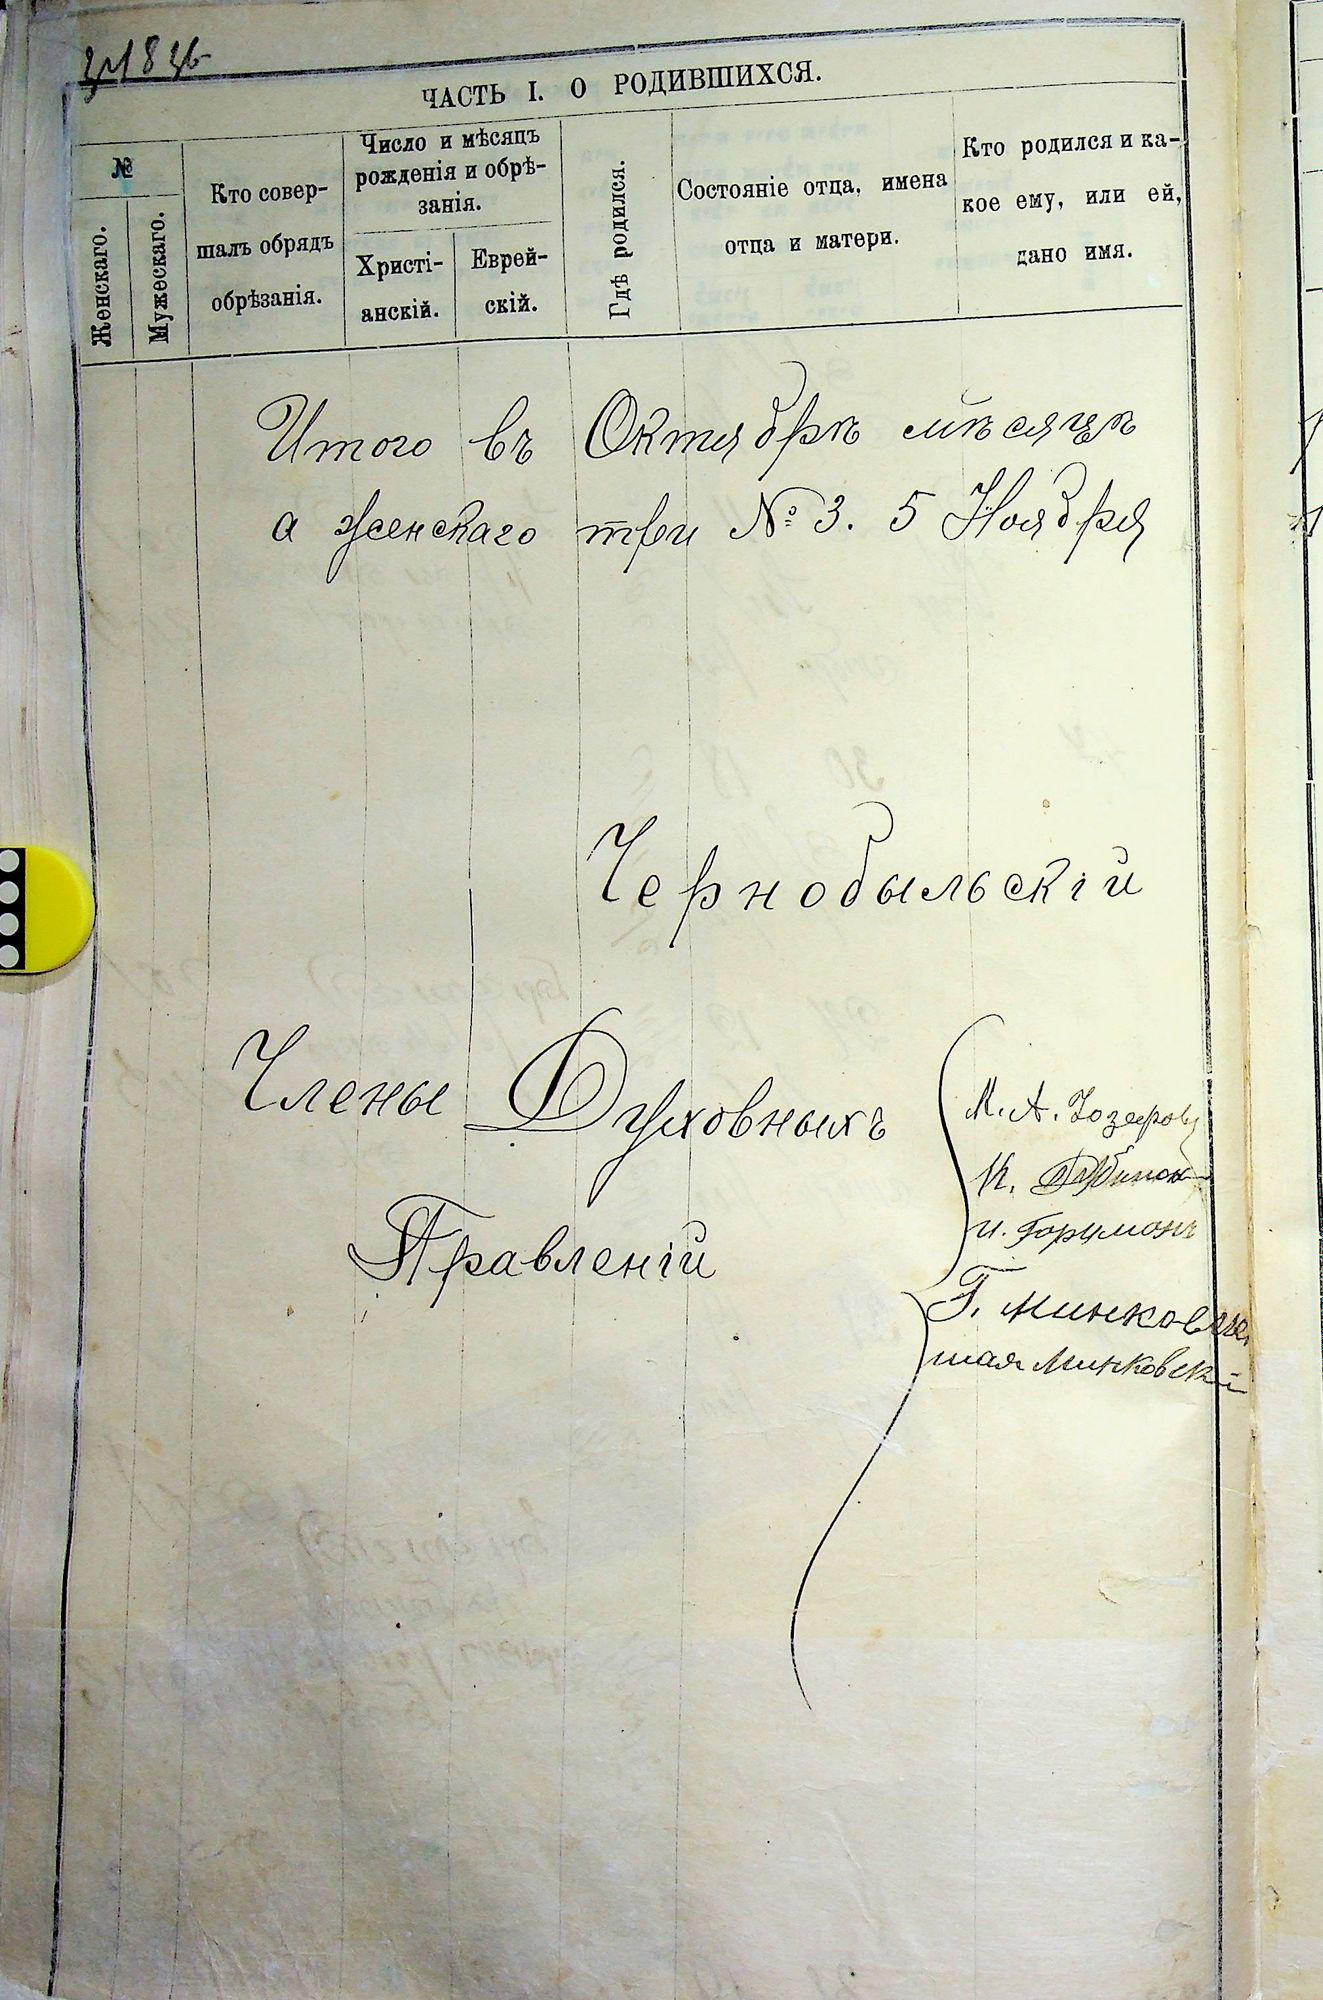 ЧАСТЬ I. О РОДИВШИХСЯ.
№
Женскаго.
Мужескаго.
Кто совер-
шалъ обрядъ
обрѣзанія.
Число и мѣсяцъ
рожденія и обрѣ-
занія.
Христі-
анскій.
Еврей-
скій.
Гдѣ родился.
Состояніе отца, имена
отца и матери.
Кто родился и ка-
кое ему, или ей,
дано имя.
Итого въ Октябрѣ мѣсяцѣ
а женскаго три № 3. 5 Ноября
Чернобыльскій
Члены Духовныхъ
Правленій
М. А.
И.
И.
Г.
Минковскі